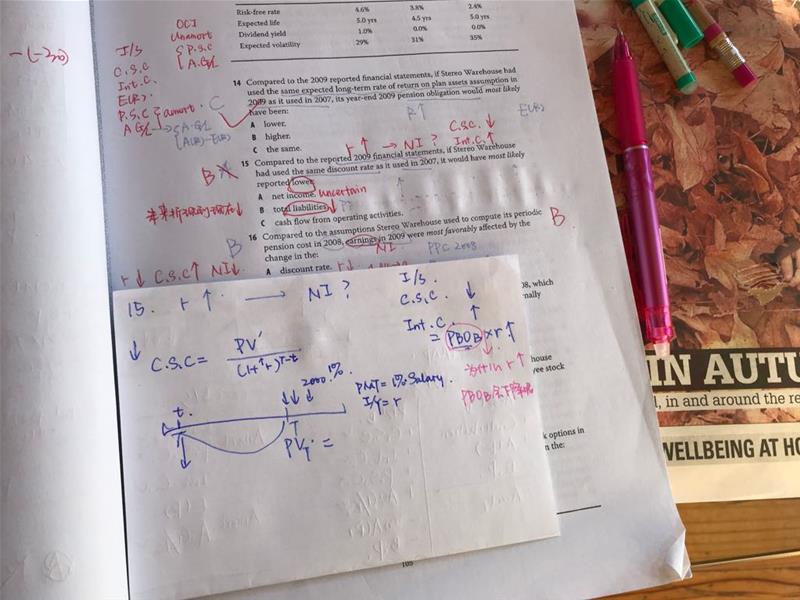 Risk-free rate 4.6% 3.8% 2.4%
Expected life 5.0 yrs 4.5 yrs 5.0 yrs
Dividend yield 1.0% 0.0% 0.0%
Expected volatility 29% 31% 35%
-(-30)
OCI
Unamort
P.S.C
A.G/L
I/S
C.S.C
Int.C.
E(R)
P.S.C } amort.
A G/L
14 Compared to the 2009 reported financial statements, if Stereo Warehouse had
used the same expected long-term rate of return on plan assets assumption in
2009 as it used in 2007, its year-end 2009 pension obligation would most likely
have been:
A lower.
B higher.
C the same.
C
E(R)
r↑ → NI? C.S.C. ↓
Int.C.↑
15 Compared to the reported 2009 financial statements, if Stereo Warehouse
had used the same discount rate as it used in 2007, it would have most likely
reported lower:
A net income. uncertain
B total liabilities ↓ ??
C cash flow from operating activities.
B
16 Compared to the assumptions Stereo Warehouse used to compute its periodic
pension cost in 2008, earnings in 2009 were most favorably affected by the
change in the:
B
B
NI PPC 2008
A discount rate.
r↓ C.S.C↑ NI↓
08, which
nally
house
ee stock
k options in
n the:
15. r ↑. → NI?
I/S.
C.S.C. ↓
Int.C. ↑
= PBOB × r↑
↓ C.S.C = PV' / (1+r)^T-t
2000.1%.
PMT = 1% Salary.
I/Y = r
t.
T
PV_T =
105
IN AUTU
l, in and around the re
WELLBEING AT HO